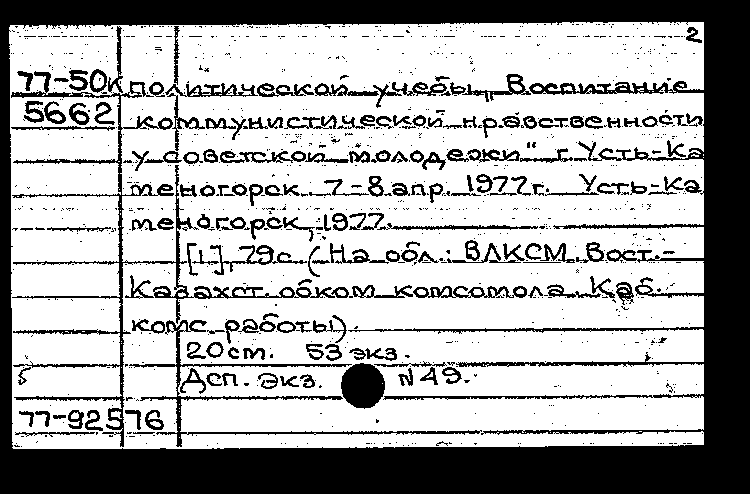 2
77-50к политической учебы „Воспитание
5662 коммунистической нравственности
у советской молодежи" г. Усть-Ка
меногорск. 7-8 апр. 1977г. Усть-Ка
меногорск, 1977.
[1], 79с. (На обл.: ВЛКСМ. Вост.-
Казахст. обком комсомола. Каб.
комс. работы).
20см. 53 экз.
Дсп. экз. N 49.
77-92576